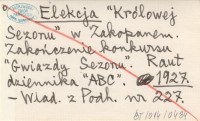 Elekcja "Królowej
Sezonu" w Zakopanem.
Zakończenie konkursu
"Gwiazdy Sezonu". Raut
dziennika "ABC". • 1927.
- Wiad. z Podh. nr 227.